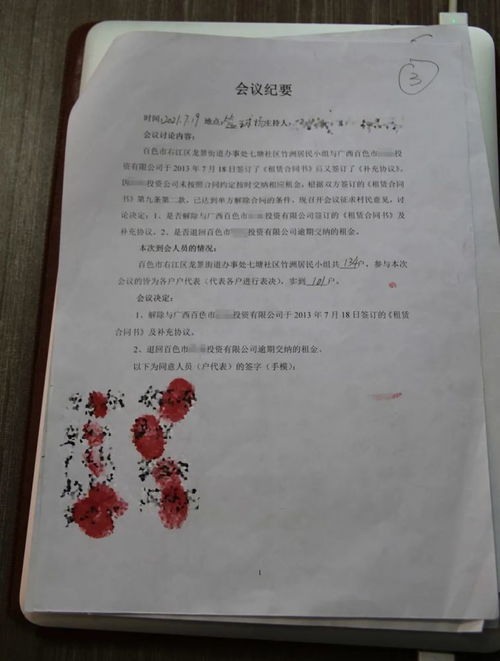 3
会议纪要
时间:2021.7.19 地点:篮球场主持人:
会议讨论内容:
百色市右江区龙景街道办事处七塘社区竹洲居民小组与广西百色市投
资有限公司于 2013 年 7 月 18 日签订了《租赁合同书》后又签订了《补充协议》,
因投资公司未按照合同约定按时交纳相应租金,根据双方签订的《租赁合同
书》第九条第二款,已达到单方解除合同的条件,现召开会议征求村民意见,讨
论决定:1、是否解除与广西百色市投资有限公司签订的《租赁合同书》及
补充协议。2、是否退回百色市投资有限公司逾期交纳的租金。
本次到会人员的情况:
百色市右江区龙景街道办事处七塘社区竹洲居民小组共 134户,参与本次
会议的皆为各户户代表(代表各户进行表决),实到 101户。
会议决定:
1、解除与广西百色市投资有限公司于 2013 年 7 月 18 日签订的《租赁
合同书》及补充协议。
2、退回百色市投资有限公司逾期交纳的租金。
以下为同意人员(户代表)的签字(手模):
1